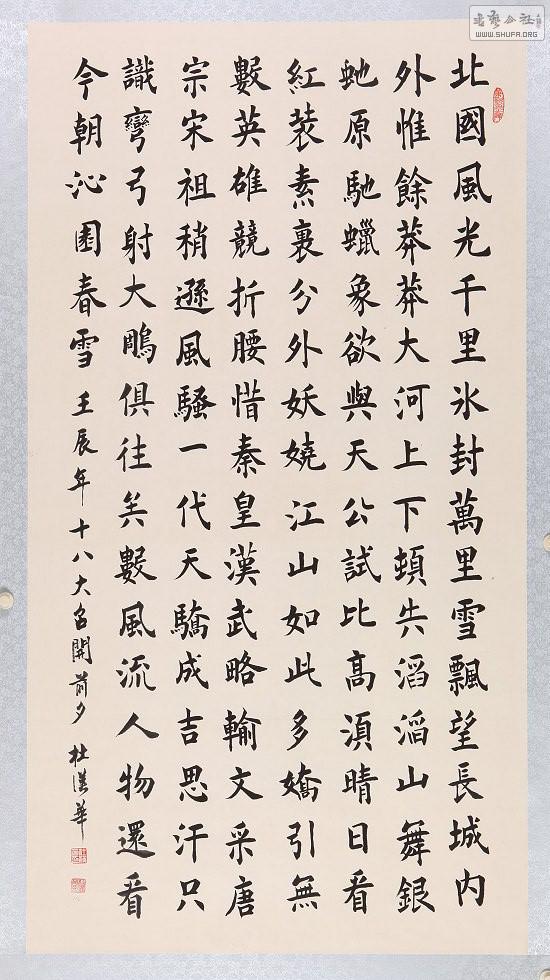 北國風光千里氷封萬里雪飄望長城内
外惟餘莽莽大河上下頓失滔滔山舞銀
虵原馳蠟象欲與天公試比髙湏晴日看
紅裝素裹分外妖嬈江山如此多嬌引無
數英雄競折腰惜秦皇漢武略輸文采唐
宗宋祖稍遜風騷一代天驕成吉思汗只
識彎弓射大鵰俱往矣數風流人物還看
今朝沁園春雪 壬辰年十八大召開前夕 杜漢華
WWW.SHUFA.ORG